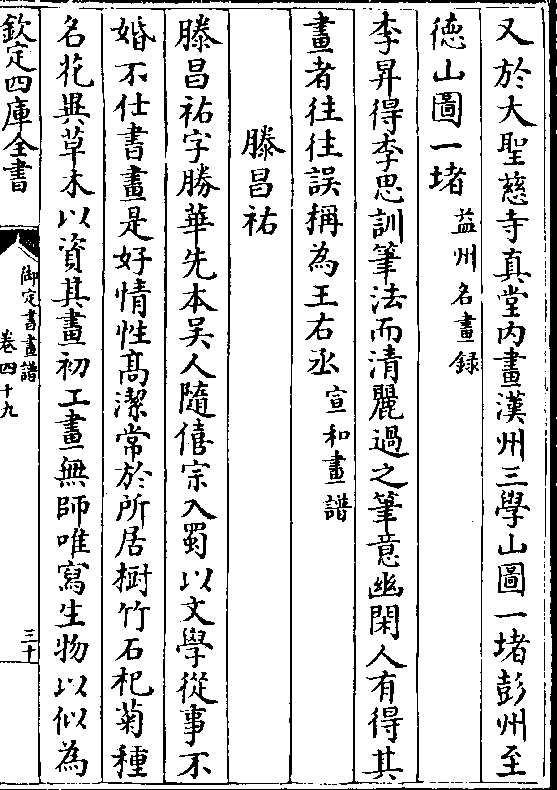 又於大聖慈寺真堂内畫漢州三學山圖一堵彭州至
徳山圖一堵益州名畫録
李昇得李思訓筆法而清麗過之筆意幽閑人有得其
畫者往往誤稱為王右丞宣和畫譜
滕昌祐
滕昌祐字勝華先本吴人隨僖宗入蜀以文學從事不
婚不仕書畫是好情性髙潔常於所居樹竹石杞菊種
名花異草木以資其畫初工畫無師唯寫生物以似為
欽定四庫全書
御定書畫譜
卷四十九
三十